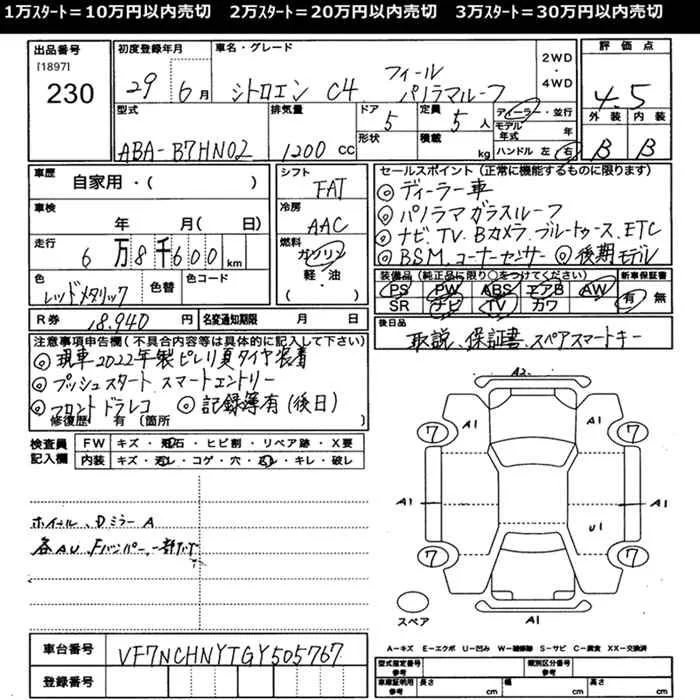 1万ｽﾀｰﾄ＝10万円以内売切　2万ｽﾀｰﾄ＝20万円以内売切　3万ｽﾀｰﾄ＝30万円以内売切
出品番号 [1897] 230
初度登録年月 29年 6月
車名・グレード シトロエン C4 フィール パノラマルーフ
2WD・4WD
評価点 4.5
外装 B 内装 B
型式 ABA-B7HN02
排気量 1200 cc
ドア 5 形状
定員 5人 積載 kg
ディーラー・並行
モデル年式 年
ハンドル 左 右
車歴 自家用・( )
車検 年 月( 日)
走行 6万8千600km
色 レッドメタリック 色替 色コード
シフト FAT
冷房 AAC
燃料 ガソリン 軽・油 ( )
R券 18,940円 名変通知期限 月 日
セールスポイント (正常に機能するものに限ります)
◎ディーラー車
◎パノラマガラスルーフ
◎ナビ、TV、Bカメラ、ブルートゥース、ETC
◎BSM、コーナーセンサー ◎後期モデル
装備品(純正品に限り○をつけてください) 新車保証書
PS PW ABS エアB AW 有・無
SR ナビ TV カワ
後日品 取説、保証書、スペアスマートキー
注意事項申告欄(不具合内容等は具体的に記入して下さい)
◎現車2022年製ピレリ夏タイヤ装着
◎プッシュスタート スマートエントリー
◎フロントドラレコ ◎記録簿有(後日)
修復歴 有(箇所
検査員記入欄 FW キズ・飛石・ヒビ割・リペア跡・X要
内装 キズ・汚レ・コゲ・穴・スレ・キレ・破レ
ホイール、DミラーA
各AU、Fバンパー、一部
A2
7 A1 A1 7
A1 A1
U1
7 7
スペア A1
A－キズ E－エクボ U－凹み W－補修跡 S－サビ C－腐食 XX－交換済
車台番号 VF7NCHNYTGY505767
登録番号
型式指定番号 参考 類別区分番号 参考
車庫証明用 参考 長さ cm 幅 cm 高さ cm